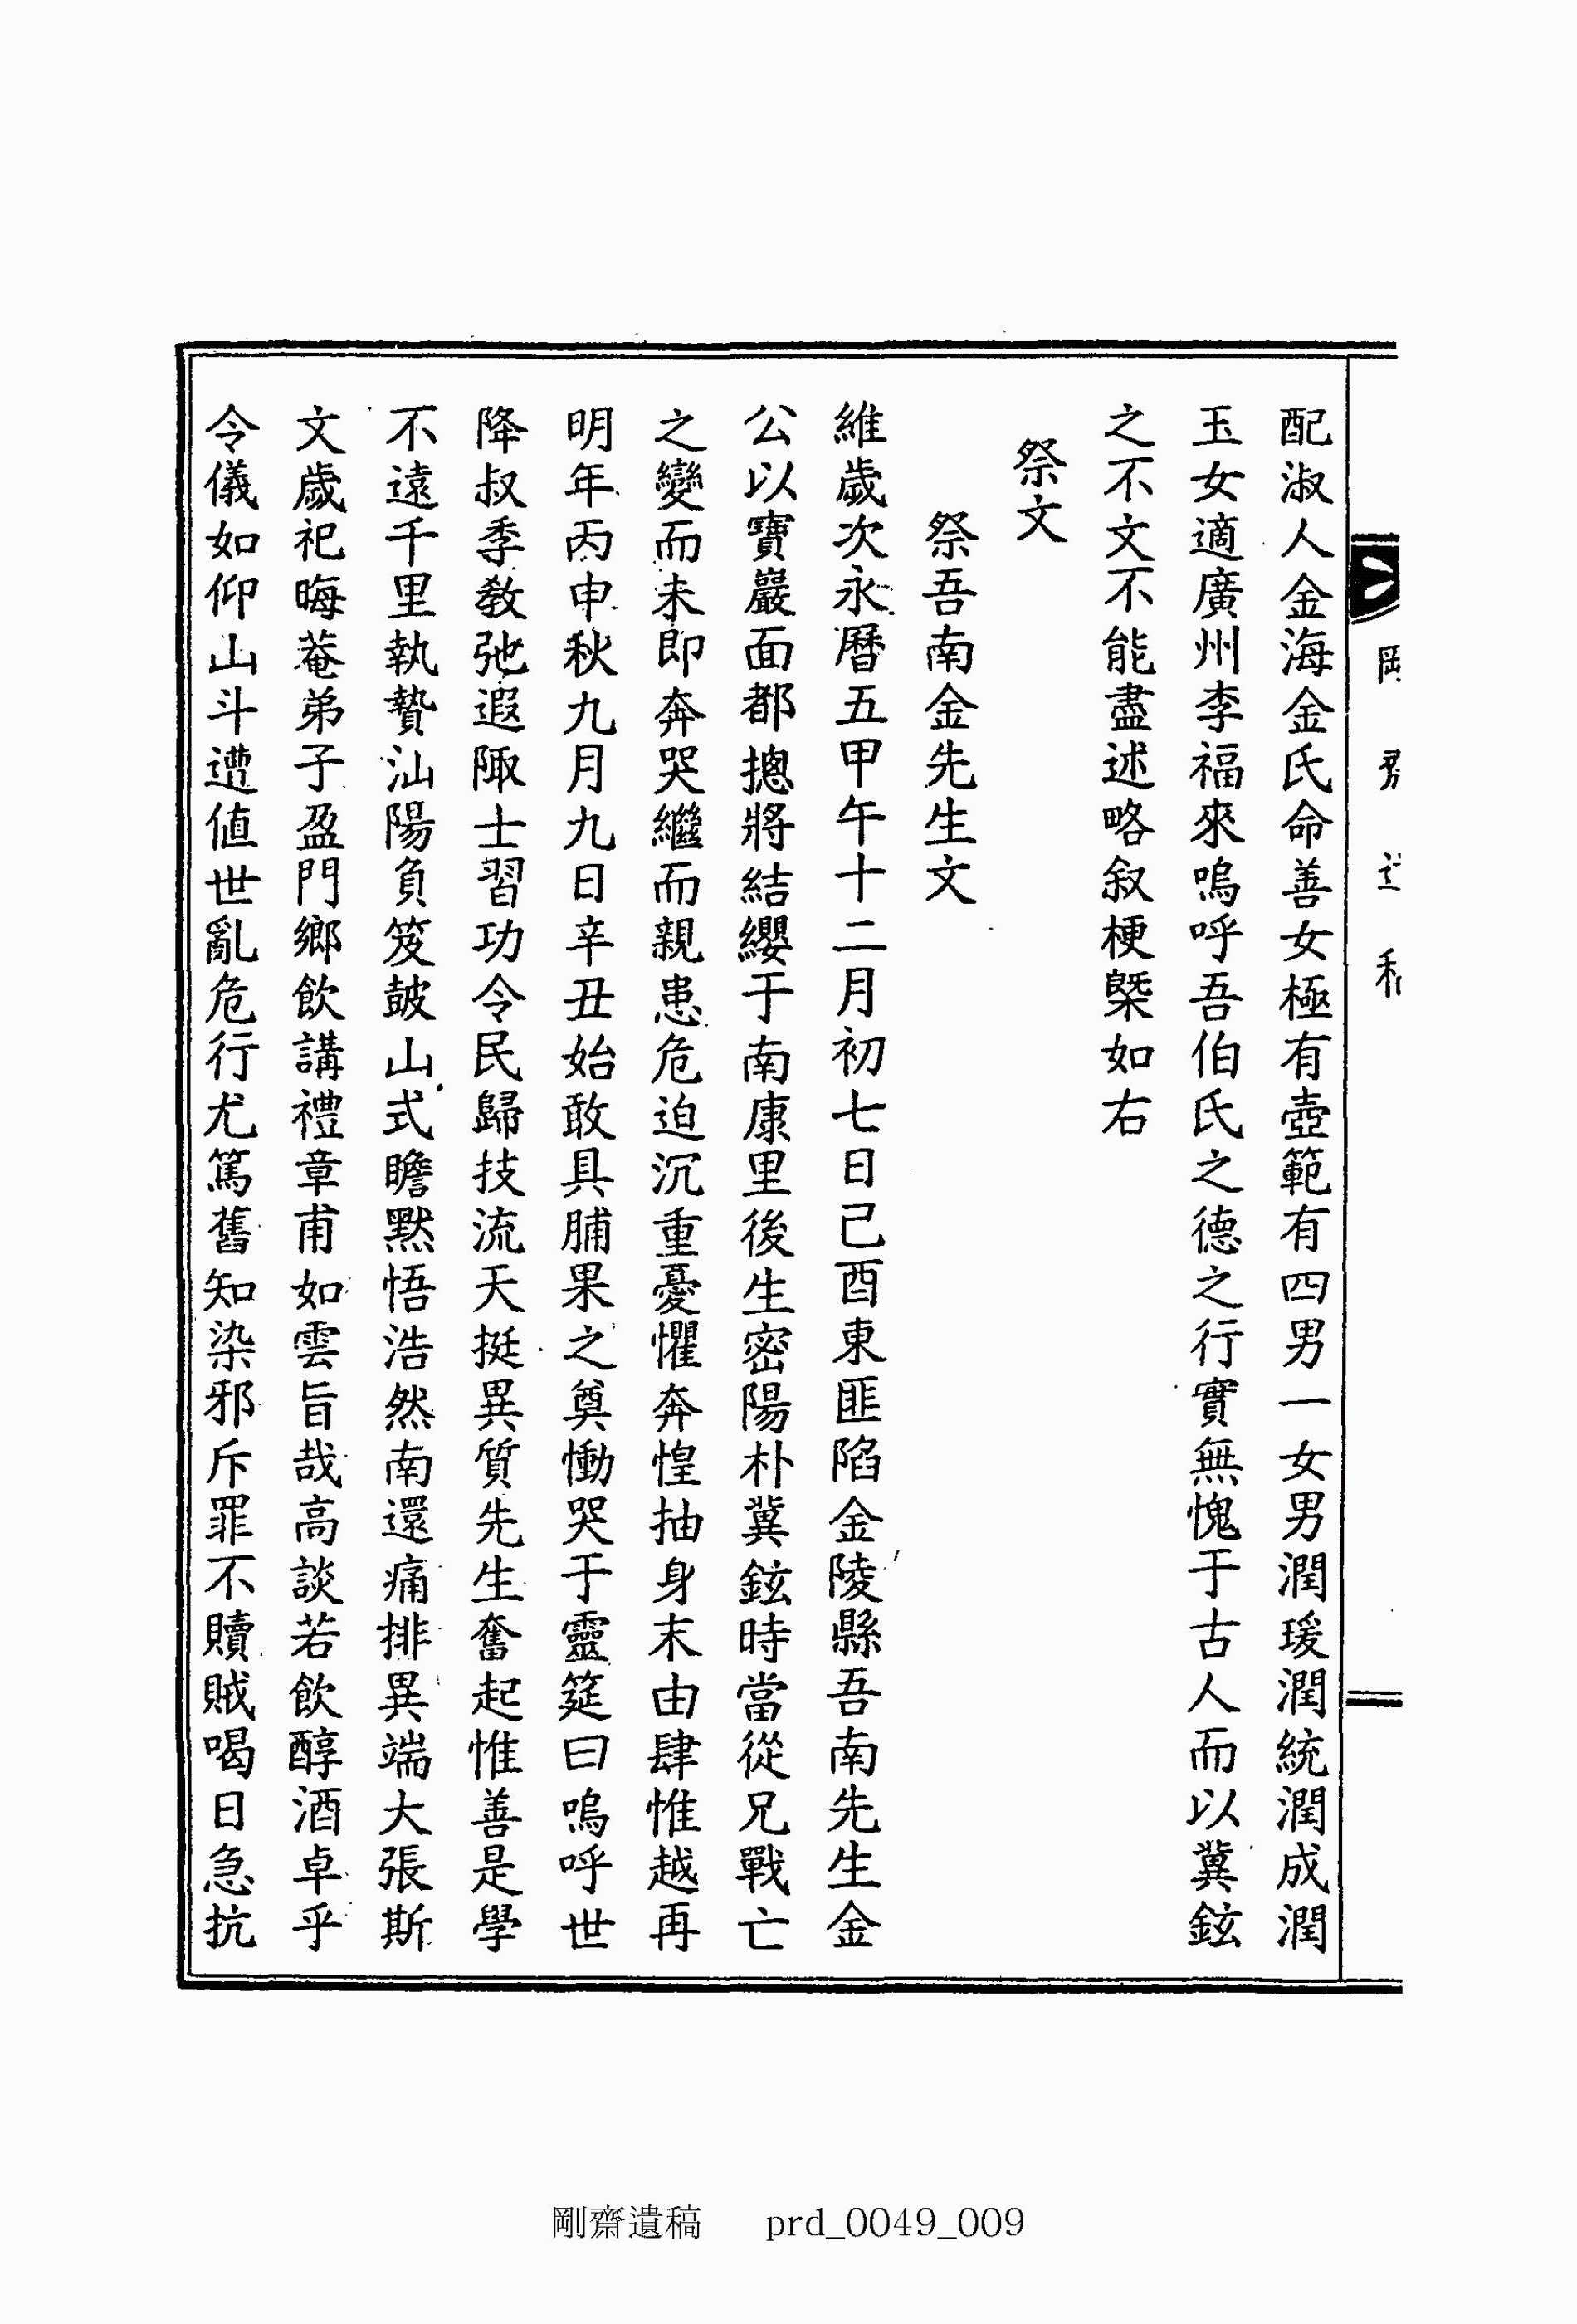 配淑人金海金氏命善女極有壺範有四男一女男潤瑗潤統潤成潤
玉女適廣州李福來嗚呼吾伯氏之德之行實無愧于古人而以冀鉉
之不文不能盡述略叙梗槩如右
祭文
祭吾南金先生文
維歲次永曆五甲午十二月初七日己酉東匪陷金陵縣吾南先生金
公以寶巖面都摠將結纓于南康里後生密陽朴冀鉉時當從兄戰亡
之變而未即奔哭繼而親患危迫沉重憂懼奔惶抽身末由肆惟越再
明年丙申秋九月九日辛丑始敢具脯果之奠慟哭于靈筵曰嗚呼世
降叔季敎弛遐陬士習功令民歸技流天挺異質先生奮起惟善是學
不遠千里執贄汕陽負笈皷山式瞻黙悟浩然南還痛排異端大張斯
文歲祀晦菴弟子盈門鄉飲講禮章甫如雲旨哉高談若飲醇酒卓乎
令儀如仰山斗遭値世亂危行尤篤舊知染邪斥罪不贖賊喝日急抗
剛齋遺稿 prd_0049_009